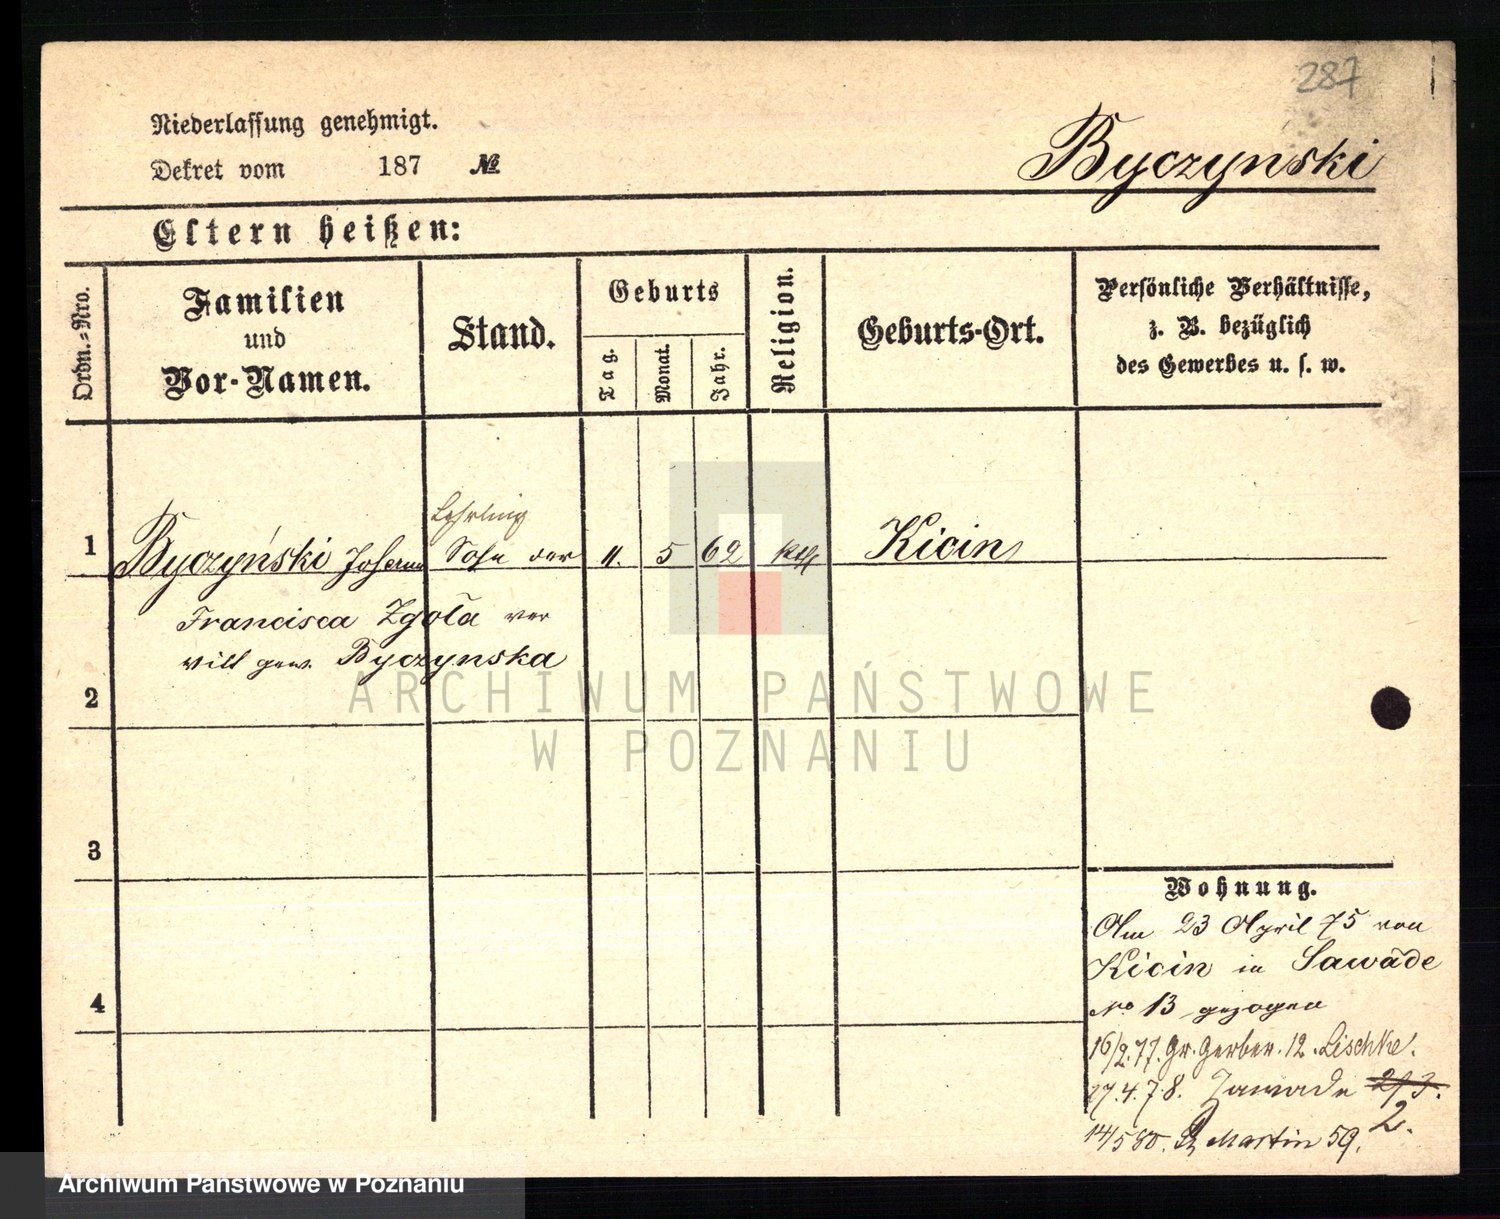 287
Niederlassung genehmigt.
Dekret vom 187 №
Byczynski
Eltern heißen:
Ordn.=Nro.
Familien
und
Vor-Namen.
Stand.
Geburts
Tag.
Monat.
Jahr.
Religion.
Geburts-Ort.
Persönliche Verhältnisse,
z. B. bezüglich
des Gewerbes u. s. w.
Lehrling
1 Byczyński Johann Sohn der 11. 5 62 kath Kicin
Francisca Zgoła ver
witt gew. Byczynska
2
3
4
Wohnung.
Am 23 April 75 von
Kicin in Sawade
No 13 gezogen
16/2.77. Gr. Gerber. 12. Lischke.
27.4.78. Zawade
2.
14/5 80. St Martin 59.
ARCHIWUM PAŃSTWOWE
W POZNANIU
Archiwum Państwowe w Poznaniu